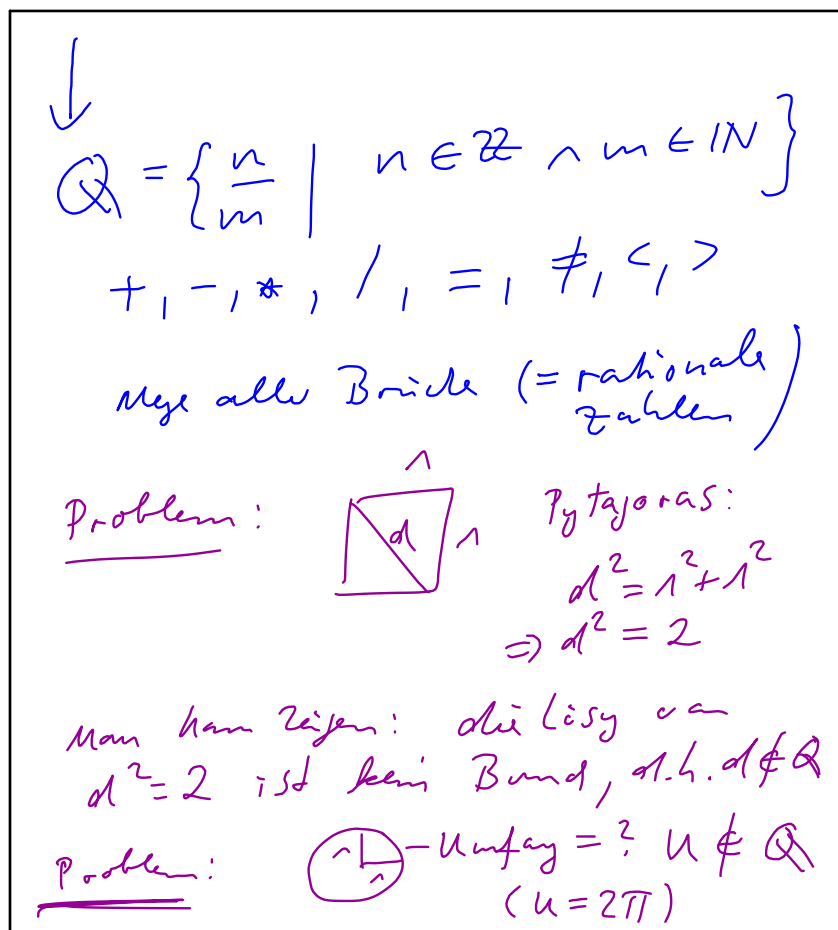 ↓
ℚ = { n/m | n ∈ ℤ ∧ m ∈ ℕ }
+, -, *, /, =, ≠, <, >
Menge aller Brüche (= rationale
Zahlen)
1
Problem: d 1 Pytagoras:
d² = 1² + 1²
⇒ d² = 2
Man kann zeigen: die Lösung von
d² = 2 ist kein Bruch, d.h. d ∉ ℚ
Problem: 1 1 - Umfang = ? U ∉ ℚ
(U = 2π)